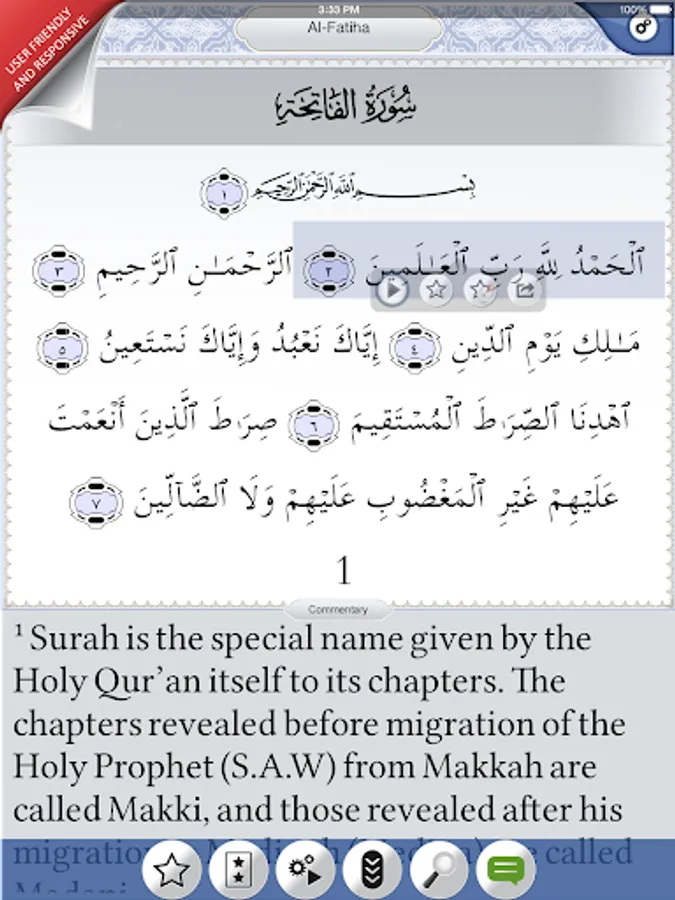 3:33 PM
100%
USER FRIENDLY
AND RESPONSIVE
Al-Fatiha
سُورَةُ الفَاتِحَةِ
بِسْمِ ٱللَّهِ ٱلرَّحْمَٰنِ ٱلرَّحِيمِ ١
ٱلْحَمْدُ لِلَّهِ رَبِّ ٱلْعَـٰلَمِينَ ٢ ٱلرَّحْمَـٰنِ ٱلرَّحِيمِ ٣
مَـٰلِكِ يَوْمِ ٱلدِّينِ ٤ إِيَّاكَ نَعْبُدُ وَإِيَّاكَ نَسْتَعِينُ ٥
ٱهْدِنَا ٱلصِّرَٰطَ ٱلْمُسْتَقِيمَ ٦ صِرَٰطَ ٱلَّذِينَ أَنْعَمْتَ
عَلَيْهِمْ غَيْرِ ٱلْمَغْضُوبِ عَلَيْهِمْ وَلَا ٱلضَّآلِّينَ ٧
1
Commentary
¹ Surah is the special name given by the
Holy Qur’an itself to its chapters. The
chapters revealed before migration of the
Holy Prophet (S.A.W) from Makkah are
called Makki, and those revealed after his
migration called